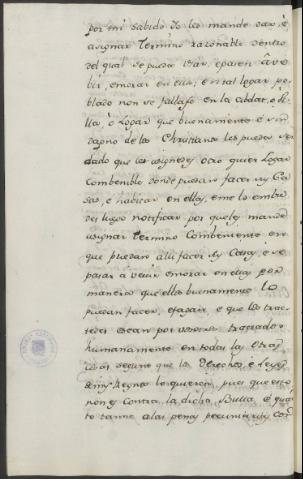 por mi sabido se les mande dar, é
asignar Termino razonable dentro
del qual se puedan
vir, é morar en ellas, é si tal logar po-
blado non se fallase en la cibdat, o Vi-
lla, ó Logar que buenamente é sin
dapño de los Christianos les pueda ser
dado que les asignedes otro qualquier Logar
Combenible donde puedan facer sus Ca-
sas, é habitar en ellas, é me lo embie-
des luego notificar por que les mande
asignar termino Combeniente en
que puedan alli facer sus Casas, é se
pasar a vevir é morar en ellas por
manera que ellos buenamente lo
puedan facer, é pasar, é que les trac-
tedes é sean por vosotros tractados
humanamente en todas las otras
cosas segunt que los Derechos, é Leyes
de mis Reynos lo quieren, pues que esto
non es contra la dicha Bulla, é quan-
to tanne a las penas pecuniarias con